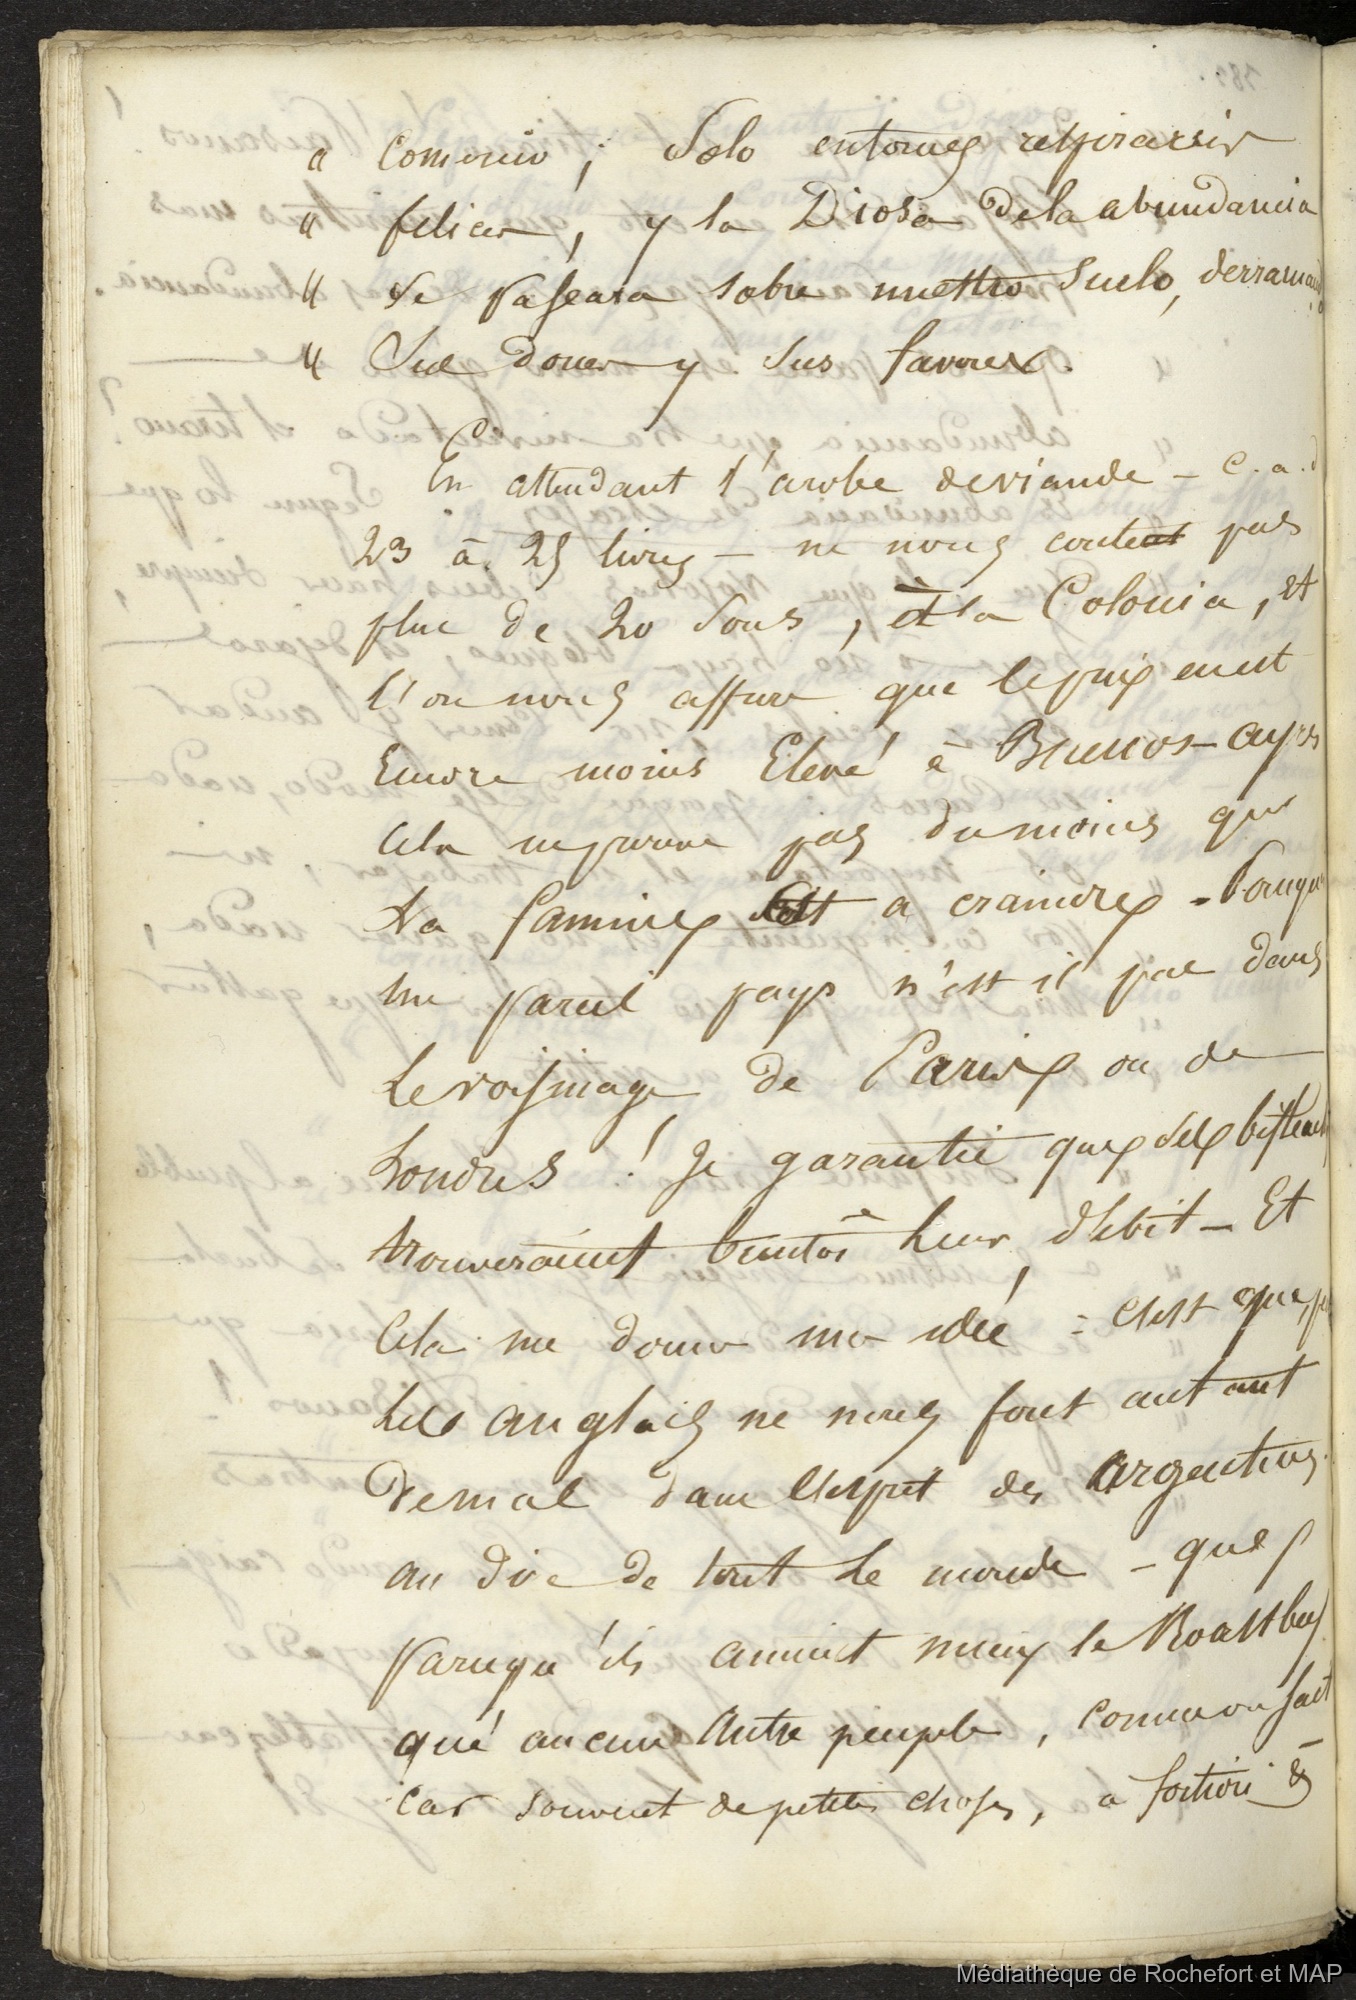 " Comercio ; Solo entonces respirareis
" felices, y la Diosa de la abundancia
" Se paseara sobre nuestro Suelo, derramando
" Sus dones y sus favores.
En attendant l'arobe de viande - c. a. d
23 à 25 livres - ne nous coutent pas
plus de 20 sous, à la Colonia, et
l'on nous assure que le prix en est
Encore moins Elevé à Buenos-ayres
Cela ne prouve pas du moins que
la famine est a craindre - Pourquoi
un pareil pays n'est il pas dans
le voisinage de Paris ou de
Londres ! Je garantie que des biftecks
trouveraient bientôt leur débit - Et
Cela me donne une idée : c'est que,
les anglais ne nous font autant
de mal dans l'esprit des argentins
au dire de tout le monde - que
parcequ'ils aiment mieux le Roastbeef
qu'aucun autre peuple, comme on sait
Car souvent de petites choses, a fortiori &
Médiathèque de Rochefort et MAP